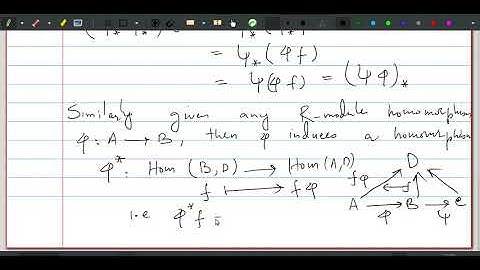 = ψ_* (φ f)
= ψ(φ f) = (ψ φ)_*
Similarly given any R-module homomorphism
φ : A → B, then φ induces a homomorphism
φ^* : Hom (B, D) → Hom (A, D)
f ↦ f φ
i.e φ^* f =
D
f φ
A → B → C
φ ψ